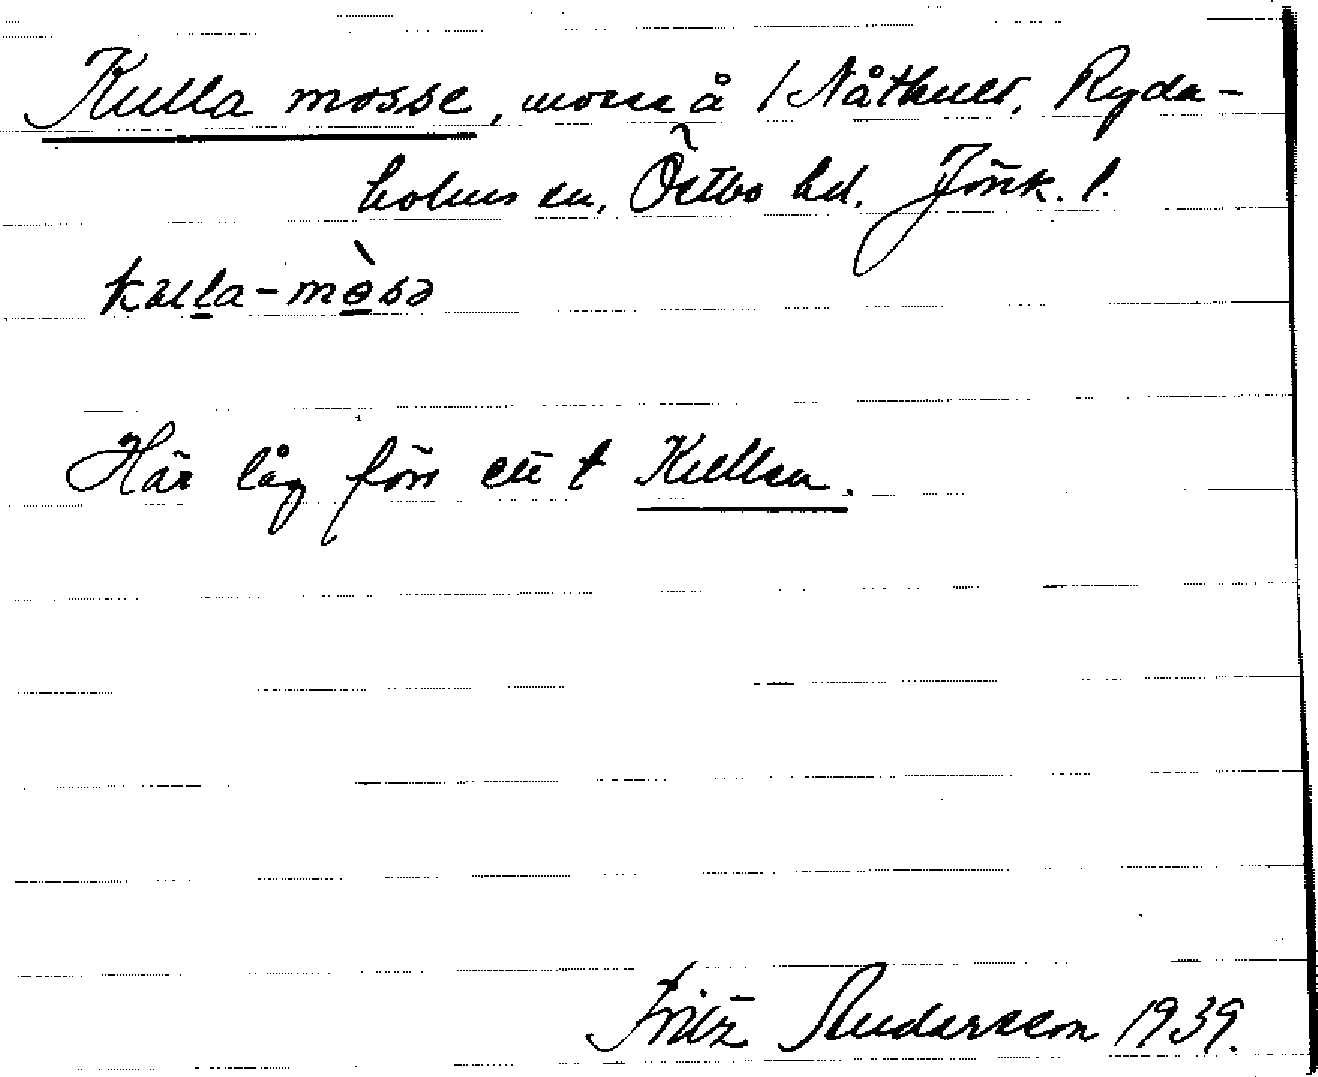 Kulla mosse, mosse å /Nåthult, Ryda-
holms sn, Östbo hd. Jönk. l.
kula-mòsə
Här låg förr ett t Kullen.
Fritz Andersson 1939.